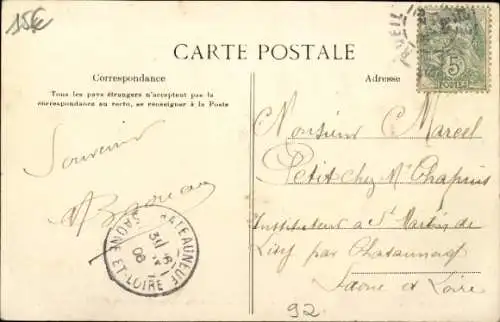 15€
CARTE POSTALE
Correspondance
Tous les pays étrangers n'acceptent pas la
correspondance au recto, se renseigner à la Poste
Adresse
5c
POSTES
Souvenir
CHATEAUNEUF
SAONE-ET-LOIRE
08
Monsieur Marcel
Petit chez Mr Chapuis
Instituteur à St Martin de
Lixy par Chateauneuf
Saone et Loire
92